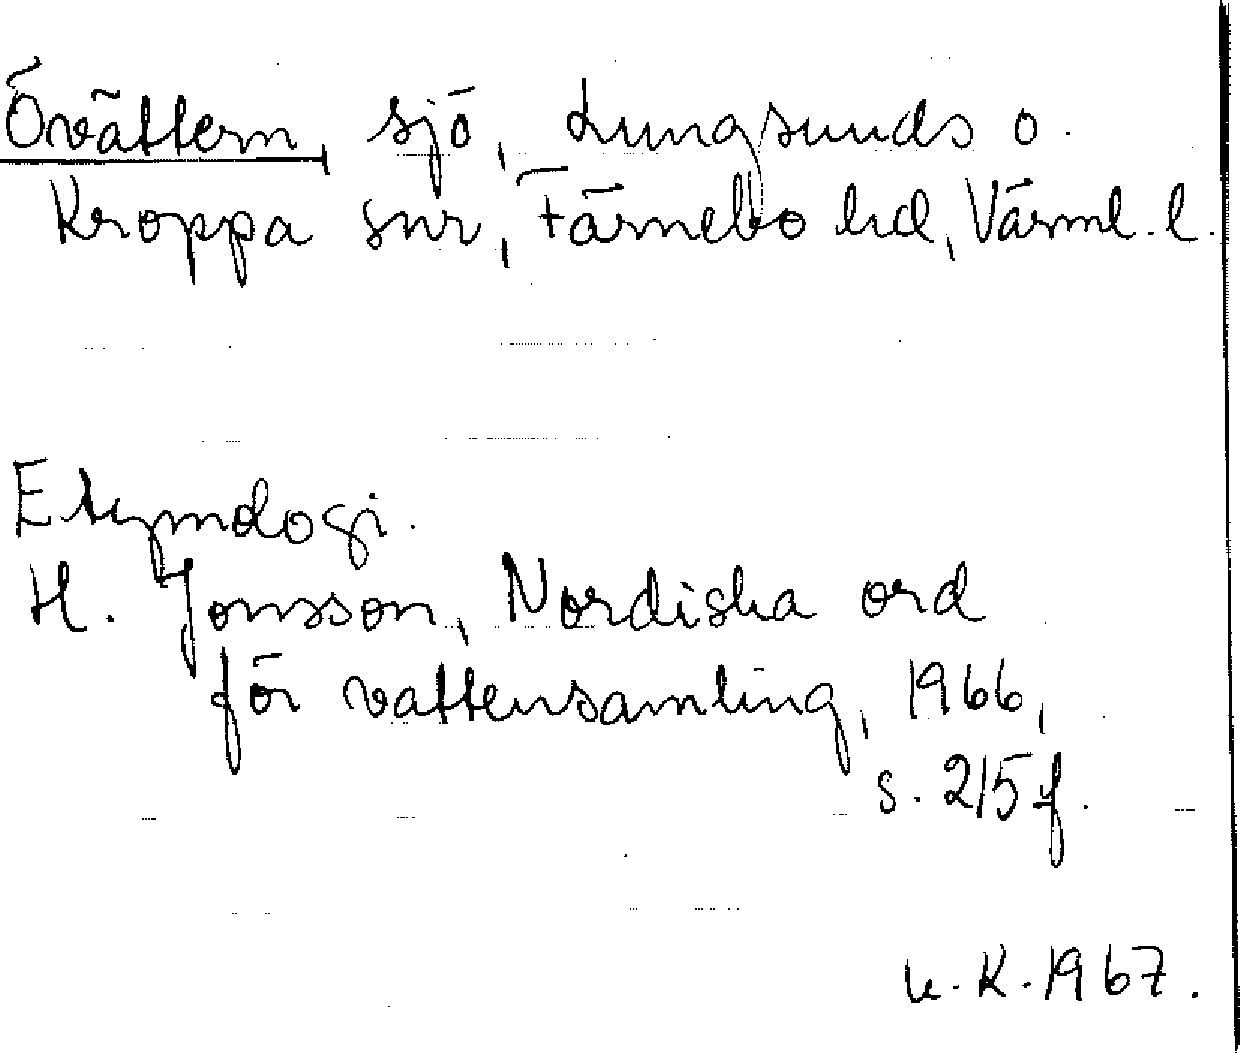 Övättern, sjö, Lungsunds o.
Kroppa snr, Färnebo hd, Värml. l.
Etymologi.
H. Jonsson, Nordiska ord
för vattensamling, 1966,
s. 215 f.
K. 1967.